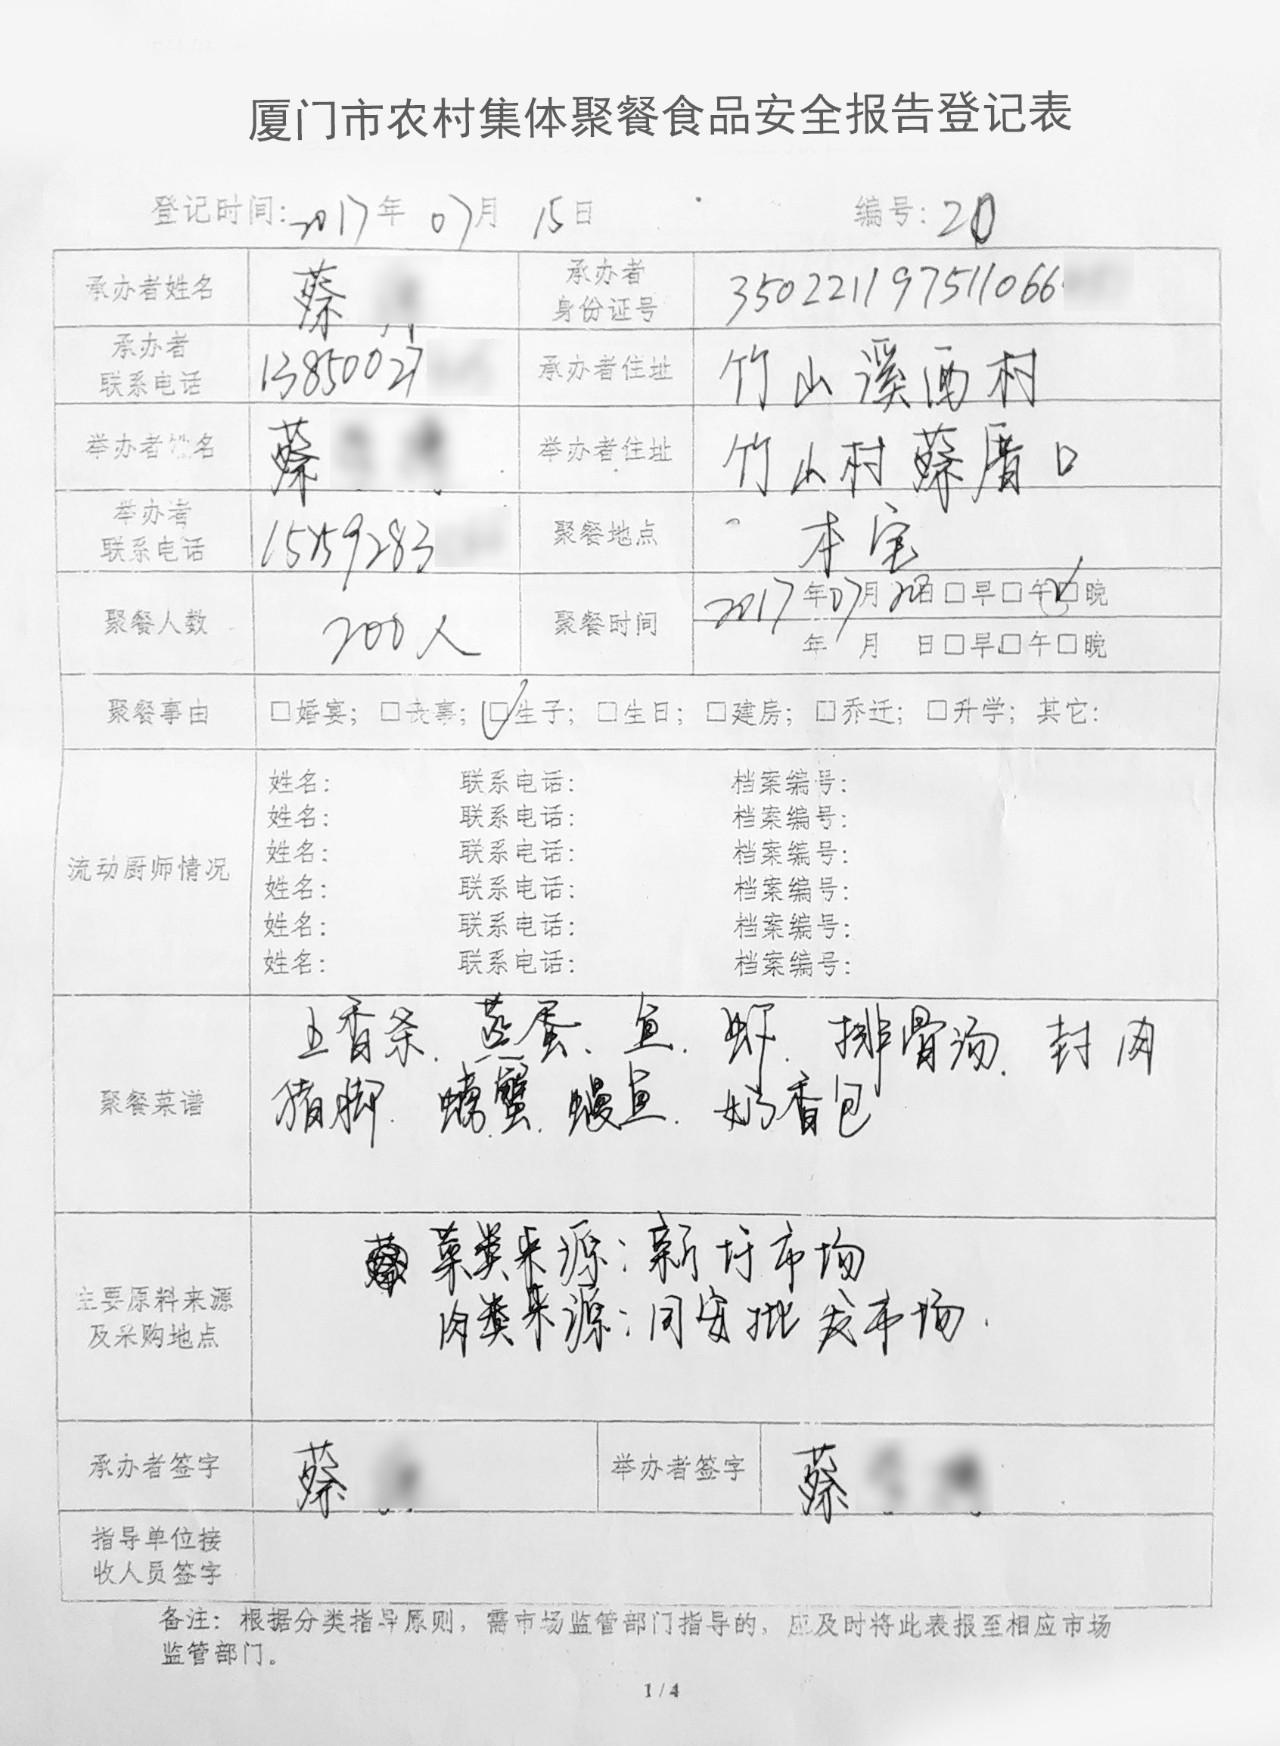 厦门市农村集体聚餐食品安全报告登记表
登记时间：2017年 07月 15日 编号：20
承办者姓名 蔡 承办者身份证号 350221197511066
承办者联系电话 13850027 承办者住址 竹山溪西村
举办者姓名 蔡 举办者住址 竹山村蔡厝口
举办者联系电话 15159283 聚餐地点 本宅
聚餐人数 200人 聚餐时间 2017年07月20日□早□午☑晚
年 月 日□早□午□晚
聚餐事由 □婚宴；□丧事；☑生子；□生日；□建房；□乔迁；□升学；其它：
流动厨师情况
姓名： 联系电话： 档案编号：
姓名： 联系电话： 档案编号：
姓名： 联系电话： 档案编号：
姓名： 联系电话： 档案编号：
姓名： 联系电话： 档案编号：
姓名： 联系电话： 档案编号：
聚餐菜谱
五香条、蒸蛋、鱼、虾、排骨汤、封肉
猪脚、螃蟹、鳗鱼、奶香包
主要原料来源及采购地点
菜类来源：新圩市场
肉类来源：同安批发市场.
承办者签字 蔡 举办者签字 蔡
指导单位接收人员签字
备注：根据分类指导原则，需市场监管部门指导的，应及时将此表报至相应市场
监管部门。
1/4